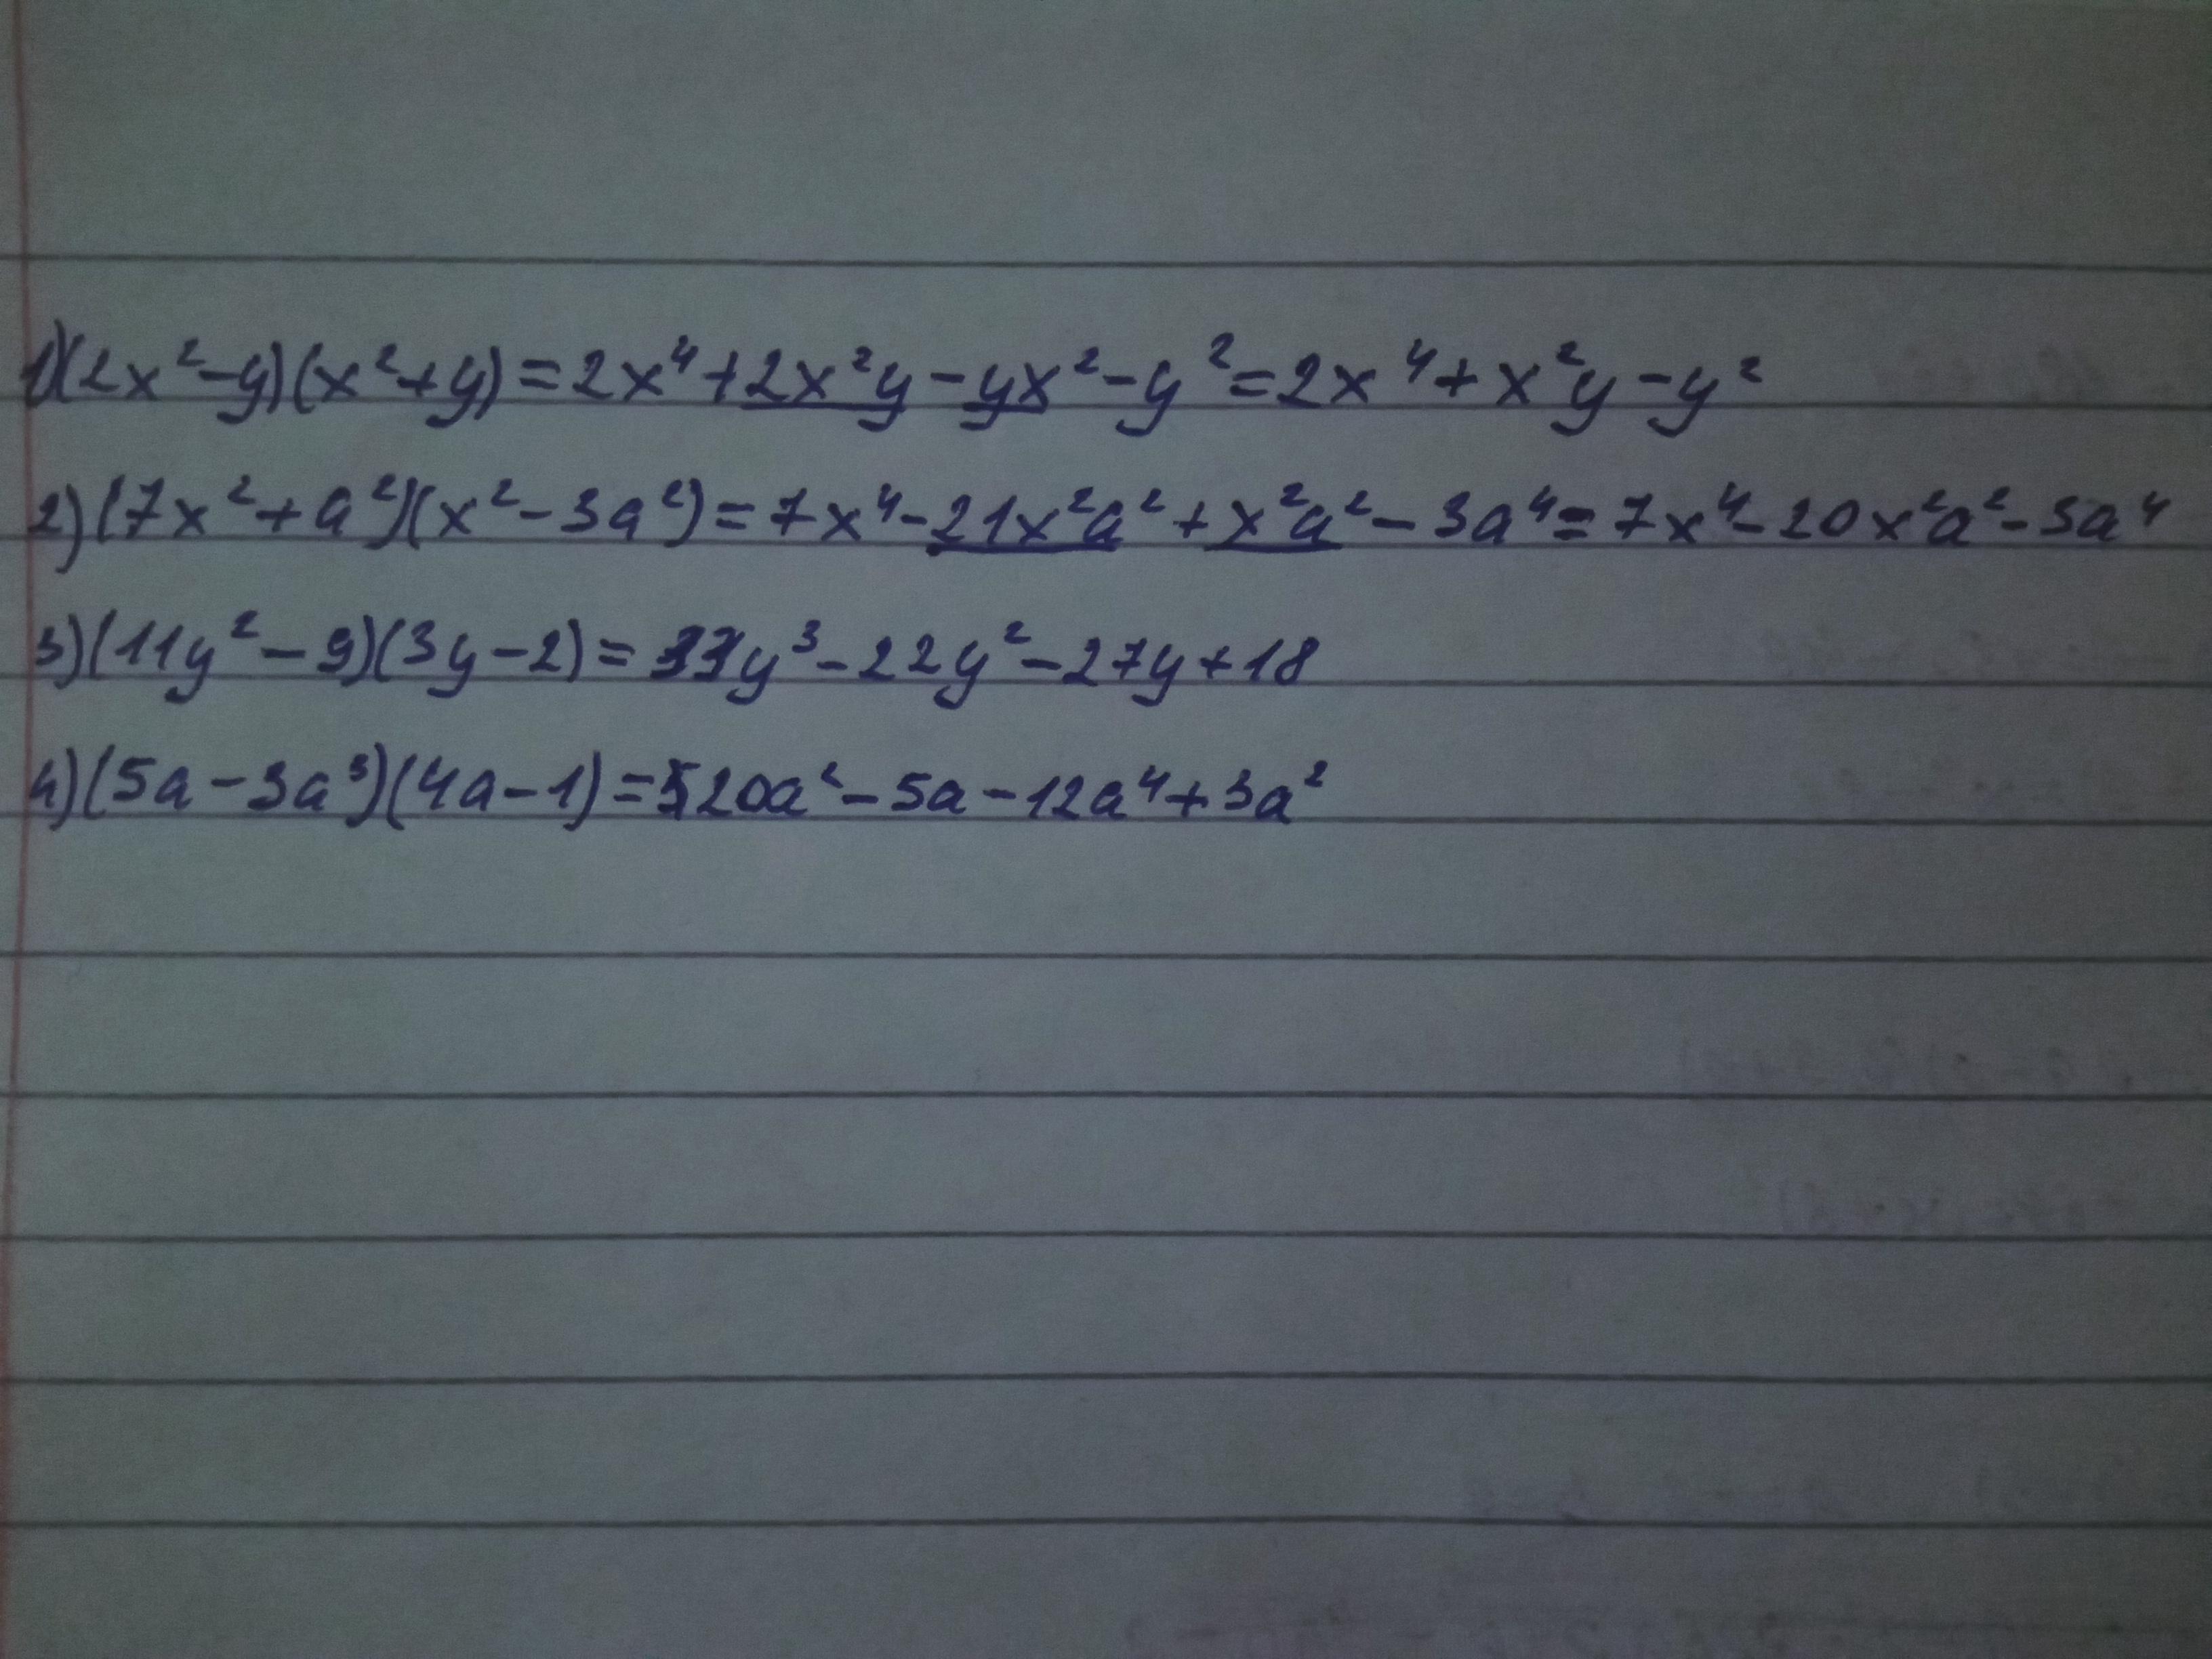 1)(2x²-y)(x²+y)=2x⁴+2x²y-yx²-y²=2x⁴+x²y-y²
2)(7x²+a²)(x²-3a²)=7x⁴-21x²a²+x²a²-3a⁴=7x⁴-20x²a²-3a⁴
3)(11y²-9)(3y-2)=33y³-22y²-27y+18
4)(5a-3a³)(4a-1)=20a²-5a-12a⁴+3a²